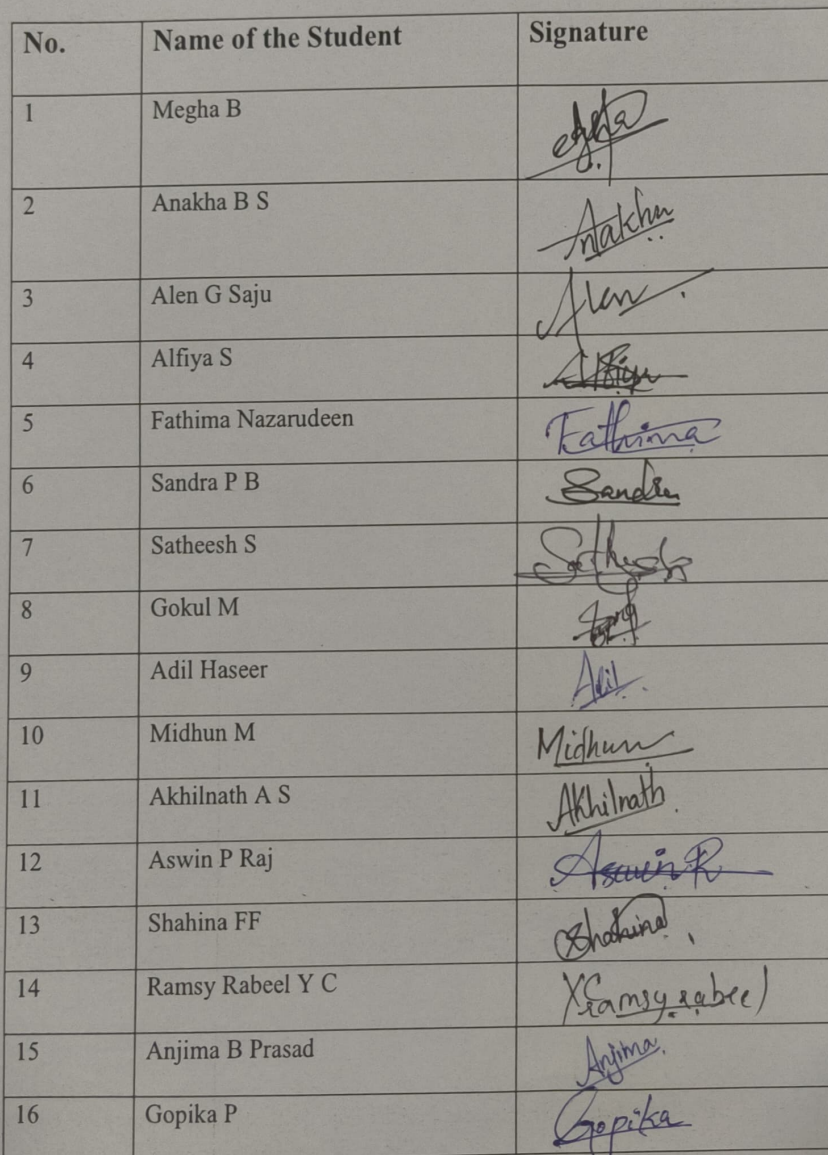 No. Name of the Student Signature
1 Megha B
2 Anakha B S Anakha
3 Alen G Saju Alen
4 Alfiya S
5 Fathima Nazarudeen Fathima
6 Sandra P B Sandra
7 Satheesh S Satheesh
8 Gokul M
9 Adil Haseer Adil
10 Midhun M Midhun
11 Akhilnath A S Akhilnath
12 Aswin P Raj Aswin R
13 Shahina FF Shahina
14 Ramsy Rabeel Y C Ramsy rabeel
15 Anjima B Prasad Anjima
16 Gopika P Gopika